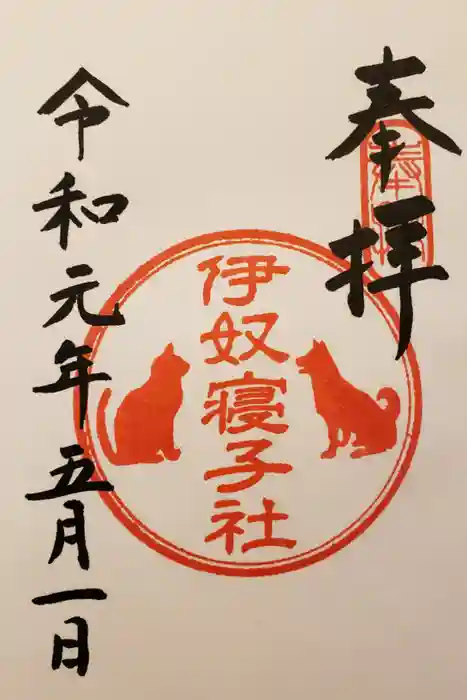 奉拝
伊奴寝子社
令和元年五月一日